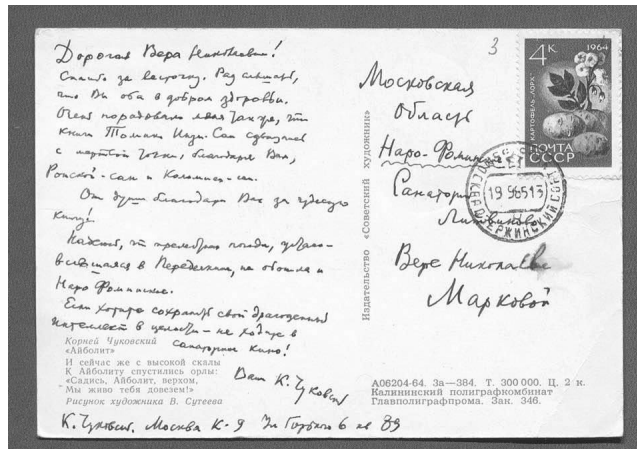 Дорогая Вера Николаевна!
Спасибо за весточку. Рад слышать,
что Вы оба в добром здоровьи.
Очень порадовало меня также, что
книга Томико Инуи-Сан сдвинулась
с мертвой точки, благодаря Вам,
От души благодарю Вас за чудесную
книгу!
Надеюсь, что прелестная погода,
в Переделкине, не обошла и
Наро Фоминские.
Если хотите сохранить свой драгоценный
интеллект в целости – не ходите в
санаторное кино!
Ваш К. Чуковский
Корней Чуковский
«Айболит»
И сейчас же с высокой скалы
К Айболиту спустились орлы:
«Садись, Айболит, верхом,
Мы живо тебя довезем!»
Рисунок художника В. Сутеева
К. Чуковский. Москва К-9 Ул Горького 6 кв 89
Издательство «Советский художник»
3
4 К
1964
КАРТОФЕЛЬ „ЛОРХ"
ПОЧТА
СССР
МОСКВА
19 9 65 13
Московская
Область
Наро-Фоминск
Санаторий
Вере Николаевне
Марковой
А06204-64. За—384. Т. 300 000. Ц. 2 к.
Калининский полиграфкомбинат
Главполиграфпрома. Зак. 346.